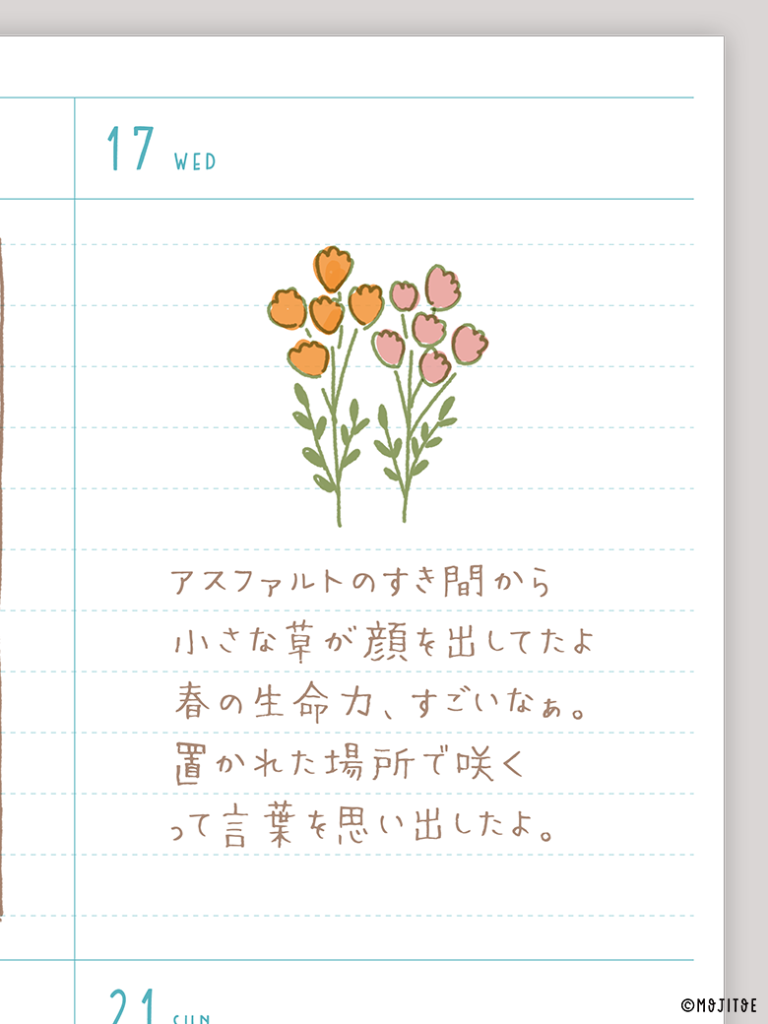 17 WED
アスファルトのすき間から
小さな草が顔を出してたよ
春の生命力、すごいなぁ。
置かれた場所で咲く
って言葉を思い出したよ。
21 SUN
©MOJITOE